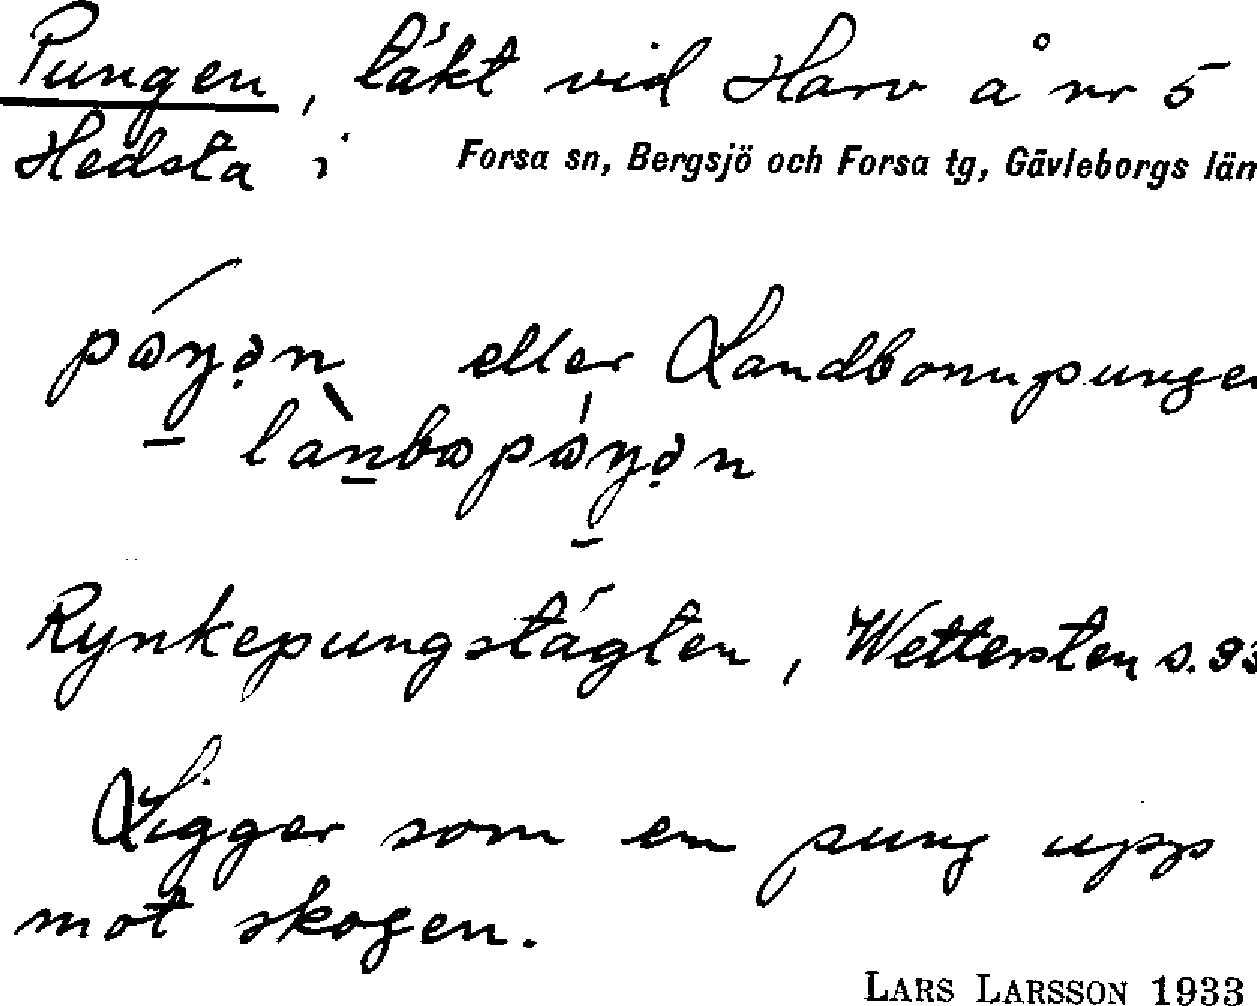 Pungen, täkt vid Harv å nr 5
Hedsta i Forsa sn, Bergsjö och Forsa tg, Gävleborgs län
eller Landbonupungen
Rynkepungstägten, Wettersten s. 93
Ligger som en pung upp
mot skogen.
LARS LARSSON 1933